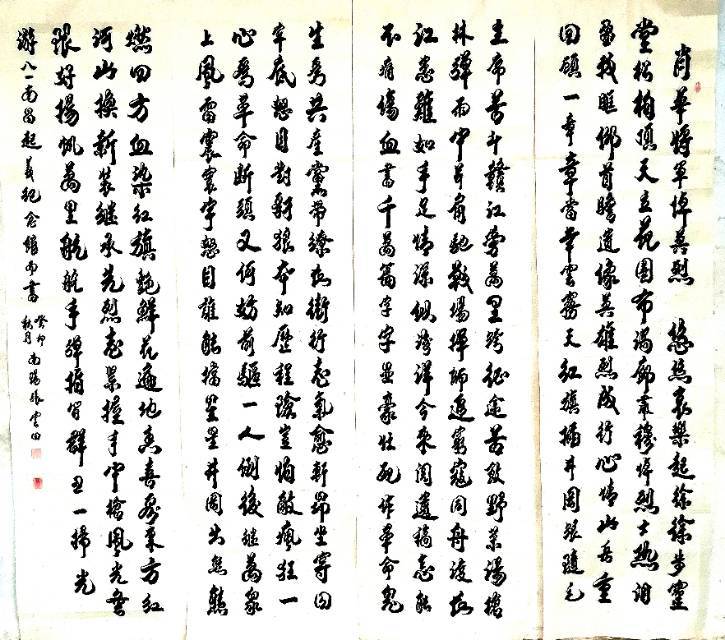 肖華將軍悼英烈 悠悠哀樂起徐徐步靈
堂松柏頂天立花圈布滿廊肅穆悼烈士熱淚
盈我眶仰首瞻遺像英雄烈成行心情比岳重
回顧一章章當年雲霧天紅旗插井岡跟隨毛
主席苦斗贛江旁萬里跨征途苦野菜湯槍
林彈雨中并肩馳戰場揮師追窮寇同舟渡長
江患難如手足情深似海洋今來閱遺稿怎能
不痛傷血書千萬篇字字豪壯死作革命鬼
生為共產黨帶鐐長街行志氣愈軒昂坐穿囚
牢底怒目對豺狼本知歷程險豈怕敵瘋狂一
心為革命斷頭又何妨前驅一人倒後繼萬眾
上風雷震寰宇怒目誰能擋星星井岡火熊熊
燃四方血染紅旗艷鮮花遍地香喜看東方紅
河山換新裝繼承先烈志緊握手中槍風光無
限好揚帆萬里航航手彈指間群丑一掃光
游八一南昌起義紀念館而書
癸卯
秋月
南陽張雲田